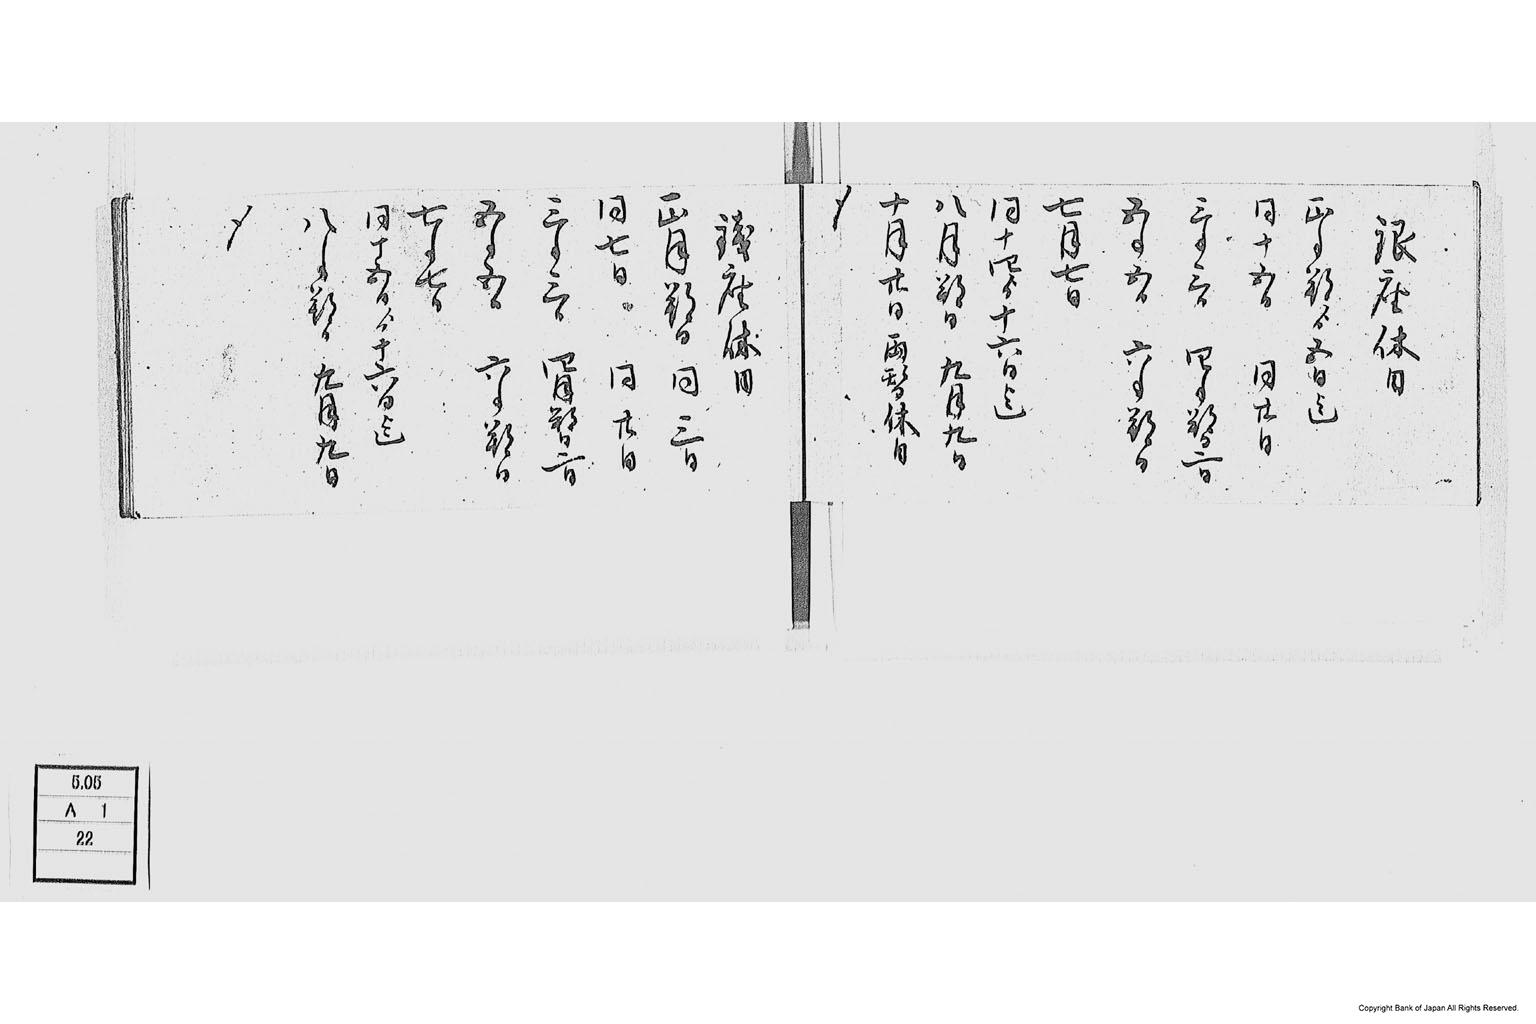 銀座休日
正月朔日ゟ五日迄
同十五日　同廿日
三月三日　四月朔日二日
五月五日　六月朔日
七月七日
同十四日ゟ十六日迄
八月朔日　九月九日
十月廿日両替休日
〆
銭座休日
正月朔日　同三日
同七日　同廿日
三月三日　四月朔日二日
五月五日　六月朔日
七月七日
同十五日ゟ十六日迄
八月朔日　九月九日
〆
5.05
A 1
22
Copyright Bank of Japan All Rights Reserved.